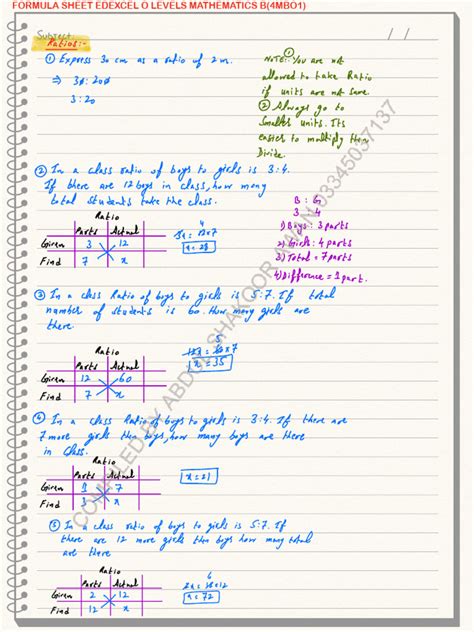 FORMULA SHEET EDEXCEL O LEVELS MATHEMATICS B(4MBO1)
Subject
Ratios:-
/ /
① Express 30 cm as a ratio of 2m.
⇒ 30:200
3:20
NOTE:- You are not
allowed to take Ratio
if units are not same.
② Always go to
Smaller units. Its
easier to multiply than
Divide.
② In a class ratio of boys to girls is 3:4.
If there are 12 boys in class, how many
total students take the class.
Ratio
Parts Actual
Given 3 12
Find 7 x
4
3x = 12×7
x = 28
B : G
3 : 4
1) Boys : 3 parts
2) Girls : 4 parts
3) Total = 7 parts
4) Difference = 1 part.
③ In a class Ratio of boys to girls is 5:7. If total
number of students is 60. How many girls are
there.
Ratio
Parts Actual
Given 12 60
Find 7 x
5
12x = 60×7
x = 35
④ In a class Ratio of boys to girls is 3:4. If there are
7 more girls than boys, how many boys are there
in class.
Ratio
Parts Actual
Given 1 7
Find 3 x
x = 21
⑤ In a class ratio of boys to girls is 5:7. If
there are 12 more girls than boys how many total
are there
Ratio
Parts Actual
Given 2 12
Find 12 x
6
2x = 12×12
x = 72
COMPILED BY ABDUL SHAKOOR AWAN 03345037137